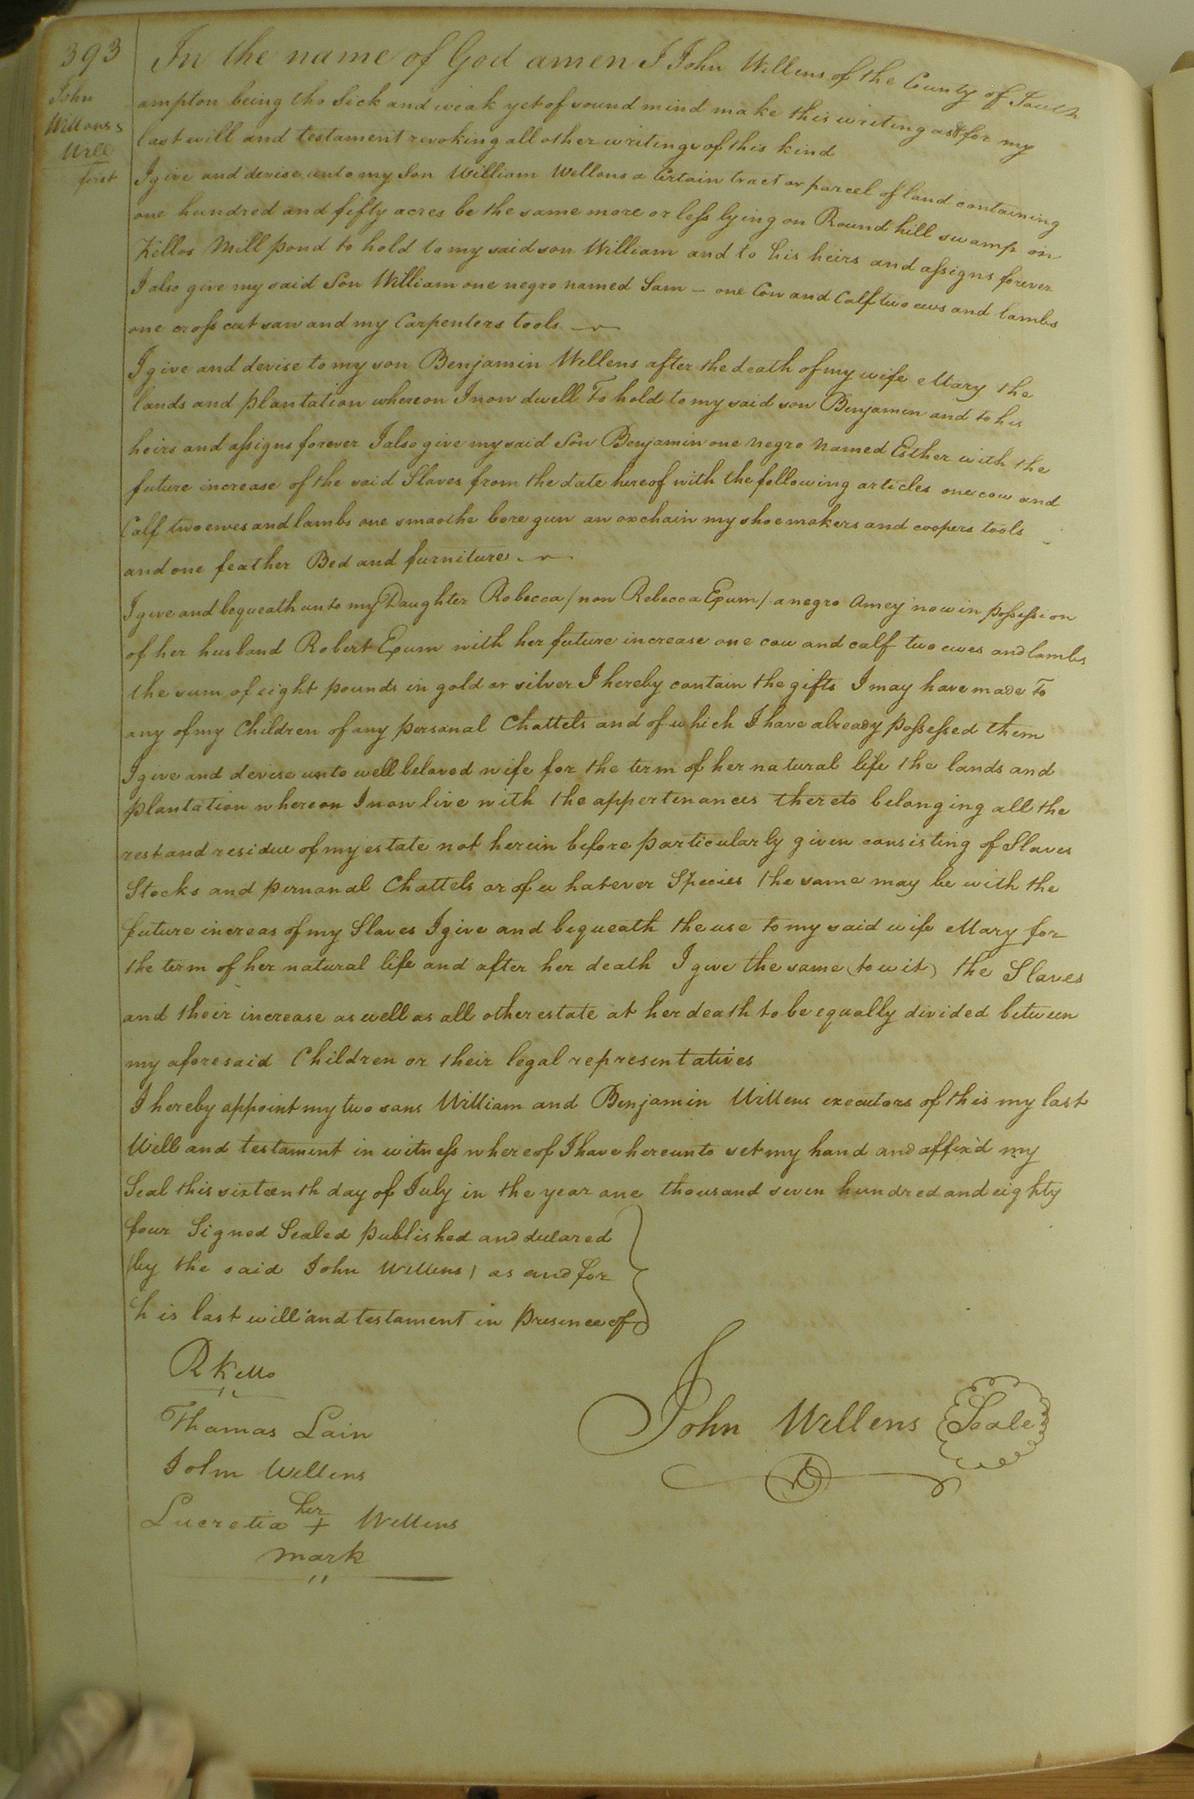 393
John
Wellons's
Will
first
In the name of God amen I John Willens of the County of South
ampton being tho Sick and weak yet of sound mind make this writing as & for my
last will and testament revoking all other writings of this kind
I give and devise unto my Son William Wellons a Certain tract or parcel of land containing
one hundred and fifty acres be the same more or less lying on Round hill swamp on
Kellos Mill pond to hold to my said son William and to his heirs and assigns forever
I also give my said Son William one negro named Sam - one Cow and Calf two ews and lambs
one cross cut saw and my Carpenters tools
I give and devise to my son Benjamin Willens after the death of my wife Mary the
lands and plantation whereon I now dwell To hold to my said son Benjamin and to his
heirs and assigns forever I also give my said Son Benjamin one negro named Esther with the
future increase of the said Slaves from the date hereof with the following articles one cow and
Calf two ewes and lambs one smoothe bore gun an oxchain my shoemakers and coopers tools
and one feather Bed and furniture
I give and bequeath unto my Daughter Rebecca / now Rebecca Exum / a negro Amey now in possession
of her husband Robert Exum with her future increase one cow and calf two ewes and lambs
the sum of eight pounds in gold or silver I hereby contain the gifts I may have made To
any of my Children of any personal Chattels and of which I have already possessed them
I give and devise unto well beloved wife for the term of her natural life the lands and
plantation whereon I now live with the appertenances thereto belonging all the
rest and residue of my estate not herein before particularly given consisting of Slaves
Stocks and pernonal Chattels or of whatever Species the same may be with the
future increas of my Slaves I give and bequeath the use to my said wife Mary for
the term of her natural life and after her death I give the same (to wit) the Slaves
and their increase as well as all other estate at her death to be equally divided between
my aforesaid Children or their legal representatives
I hereby appoint my two sons William and Benjamin Willens executors of this my last
Will and testament in witness whereof I have hereunto set my hand and affixd my
Seal this sixteenth day of July in the year one thousand seven hundred and eighty
four Signed Sealed published and dulared
(by the said John Willens) as and for
his last will and testament in presence of
R Kello
Thomas Lain
John Willens
her
Lucretia + Willens
mark
John Willens Seale